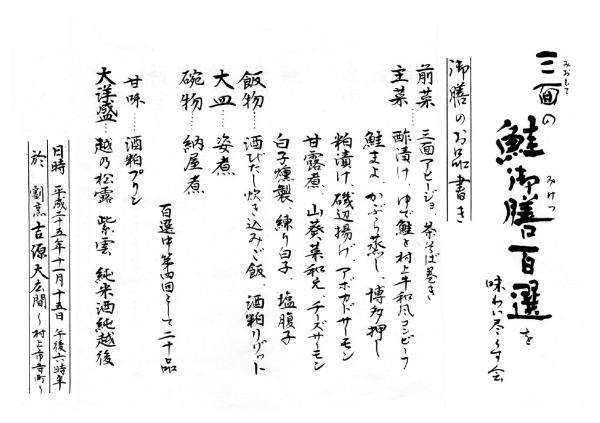 三面の鮭御膳百選を
みおもて
みけつ
味わい尽くす会
御膳のお品書き
前菜……三面アヒージョ 茶そば巻き
主菜……酢漬け、ゆで鮭と村上牛和風コンビーフ
鮭まよ、かぶら蒸し、博多押し
粕漬け、磯辺揚げ、アボカドサーモン
甘露煮、山葵菜和え、チーズサーモン
白子燻製 練り白子、塩腹子
飯物……酒びたし炊き込みご飯、酒粕リゾット
大皿……姿煮
碗物……納屋煮
百選中第四回そして二十品
甘味…酒粕プリン
大洋盛…越乃松露 紫雲 純米酒純越後
日時 平成二十五年十一月十五日 午後六時半
於 割烹 吉源大広間〜村上市寺町〜